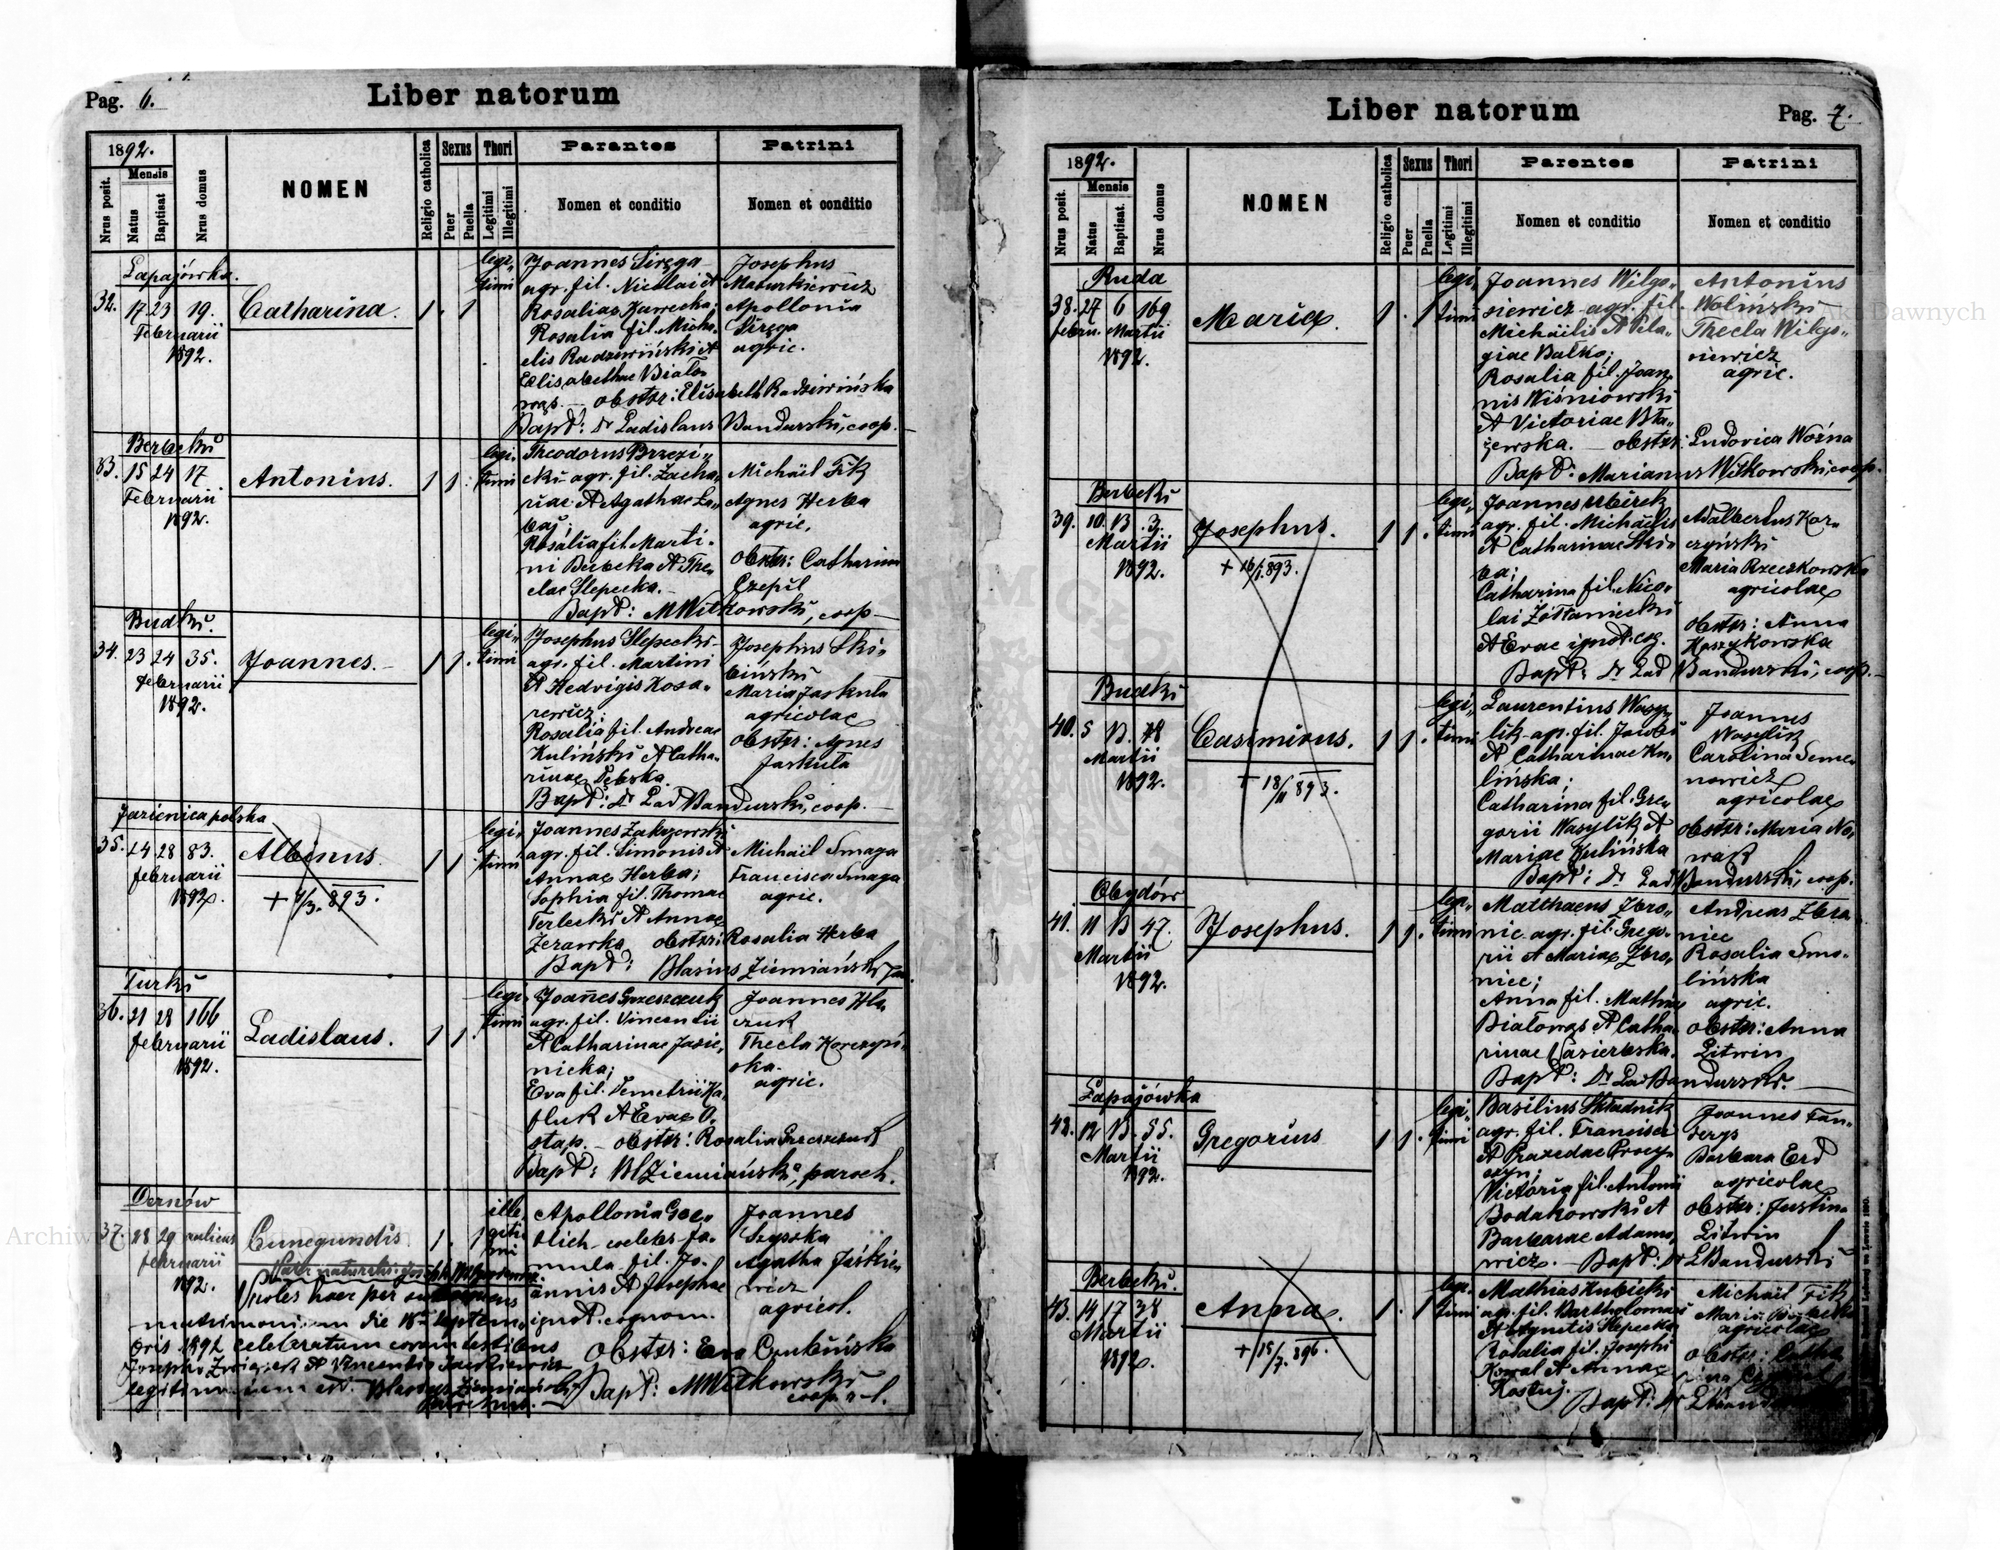 Pag. 6.
Liber natorum
1892.
Mensis
Nrus posit.
Natus
Baptisat
Nrus domus
NOMEN
Religio catholica
Sexus
Puer
Puella
Thori
Legitimi
Illegitimi
Parentes
Nomen et conditio
Patrini
Nomen et conditio
Łapajówka.
32. 17 23 19.
Februarii
1892.
Catharina.
1. 1
legi-
timi
Joannes Siręga
agr. fil. Nicolai et
Rosalias Kawecka;
Rosalia fil. Micha-
elis Radziwiński et
Elisabethae Biało-
wąs. — obstr: Elisabeth Radziwińska
Bapt: Dr Ladislaus Bandurski, coop.
Josephus
Maturkiewicz
Apollonia
Siręga
agric.
Berbeki
33. 15 24 17
Februarii
1892.
Antonius.
1 1.
legi-
timi
Theodorus Brzezi-
cki agr. fil. Zacha-
riae et Agathae Ła-
baj;
Rosalia fil. Marti-
ni Berbeka et The-
clae Slepecka.
Bapt: MWitkowski, coop
Michäil Fik
Agnes Herba
agric.
Obstr: Catharina
Czepil
Budki.
34. 23 24 35.
Februarii
1892.
Joannes.
1 1.
legi-
timi
Josephus Slepecki
agr. fil. Martini
et Hedvigis Kosa-
rewicz;
Rosalia fil. Andreae
Kuliński et Catha-
rinae Dębska
Bapt: Dr Lad Bandurski, coop.
Josephus Ski-
biński
Maria Jaskuła
agricolae
Obstr: Agnes
Jaskuła
Jazienica polska
35. 24 28 83.
februarii
1892.
Albinus
+ 4/3. 893.
1 1.
legi-
timi
Joannes Zakrzewski
agr. fil. Simonis et
Annae Herba;
Sophia fil. Thomae
Terlecki et Annae
Żerawka obstr: Rosalia Herba
Bapt: Blasius Ziemiański
Michäil Smaga
Francisca Smaga
agric.
Turki
36. 21 28 166
februarii
1892.
Ladislaus.
1 1.
legi-
timi
Joannes Grzeszczuk
agr. fil. Vincentii
et Catharinae Jasie-
nicka;
Eva fil. Demetrii Ka-
fluk et Evae O-
stap. — obstr: Rosalia Grzeszczuk
Bapt: BlZiemiański, paroch.
Joannes Hla
czuk
Thecla Korczyń-
ska
agric.
Dernów
37. 28 29 aulicus
februarii
1892.
Cunegundis.
1. 1
ille-
giti
mi
Apollonia Gor-
lich coelebs fa-
mula fil. Jo-
annis et Josephae
ignot. cognom.
Obstr: Eva Czubińska
Bapt: MWitkowski
coop
Joannes
Szyszka
Agatha Jaśkie-
wicz
agricol.
Pater naturalis: Joseph
Proles haec per subsequens
matrimonium die 18 Septem-
bris 1892 celebratum coram testibus
Josepho et Vincentio
legitima Blasius Ziemiański
Liber natorum
Pag. 7.
1892.
Mensis
Nrus posit.
Natus
Baptisat.
Nrus domus
NOMEN
Religio catholica
Sexus
Puer
Puella
Thori
Legitimi
Illegitimi
Parentes
Nomen et conditio
Patrini
Nomen et conditio
Ruda
38. 27 6 169
februa. Martii
1892.
Maria.
1. 1
legi-
timi
Joannes Wilgo-
siewicz agr. fil.
Michäilis et Pela-
giae Bałko;
Rosalia fil. Joan-
nis Wiśniowski
et Victoriae Bła-
żewska. — obstr: Ludovica Woźna
Bapt: Marianus Witkowski, coop.
Antonius
Woliński
Thecla Wilgo-
siewicz
agric.
Berbeki
39. 10. 13. 3.
Martii
1892.
Josephus.
+ 16/1. 893.
1 1.
legi-
timi
Joannes Ubirek
agr. fil. Michäelis
et Catharinae Ski-
ba;
Catharina fil. Nico-
lai Żółtaniecki
et Evae ignot. cog.
Bapt: Dr Lad Bandurski, coop.
Adalbertus Kor-
czyński
Maria Rzeczkowska
agricolae
obstr: Anna
Koszykowska
Budki
40. 5 13. 78
Martii
1892.
Casimirus.
+ 18/11 893.
1 1.
legi-
timi
Laurentius Wasy-
lik agr. fil. Jacobi
et Catharinae Ku-
lińska;
Catharina fil. Gre-
gorii Wasylik et
Mariae Kulińska
Bapt: Dr Lad Bandurski, coop.
Joannes
Wasylik
Carolina Seme-
nowicz
agricolae
obstr: Maria No-
wak
Obydów
41. 11 13 47.
Martii
1892.
Josephus.
1 1.
legi-
timi
Matthaeus Zbro-
nic agr. fil. Grego-
rii et Mariae Zbro-
niec;
Anna fil. Mathiae
Białowąs et Catha-
rinae Jazierska.
Bapt: Dr Lad Bandurski.
Andreas Zbro
niec
Rosalia Smo-
lińska
agric.
obstr: Anna
Litwin
Łapajówka
42. 12 13. 55.
Martii
1892.
Gregorius
1 1.
legi-
timi
Basilius Składnik
agr. fil. Francisci
et Praxedae Procy-
szyn;
Victoria fil. Antonii
Bodakowski et
Barbarae Adamo-
wicz. Bapt: Dr LBandurski
Joannes Fan-
derys
Barbara Erd
agricolae
obstr: Justina
Litwin
Berbeki.
43. 14 17 38
Martii
1892.
Anna.
+ 15/7. 896.
1. 1
legi-
timi
Mathias Kubicki
agr. fil. Bartholomaei
et Agnetis Slepecka
Rosalia fil. Josephi
Kowal et Annae
Kostuj.
Bapt: Dr LBandurski
Michäil Fik
Maria Berbeka
agricolae
obstr: Catha
rina Czepil